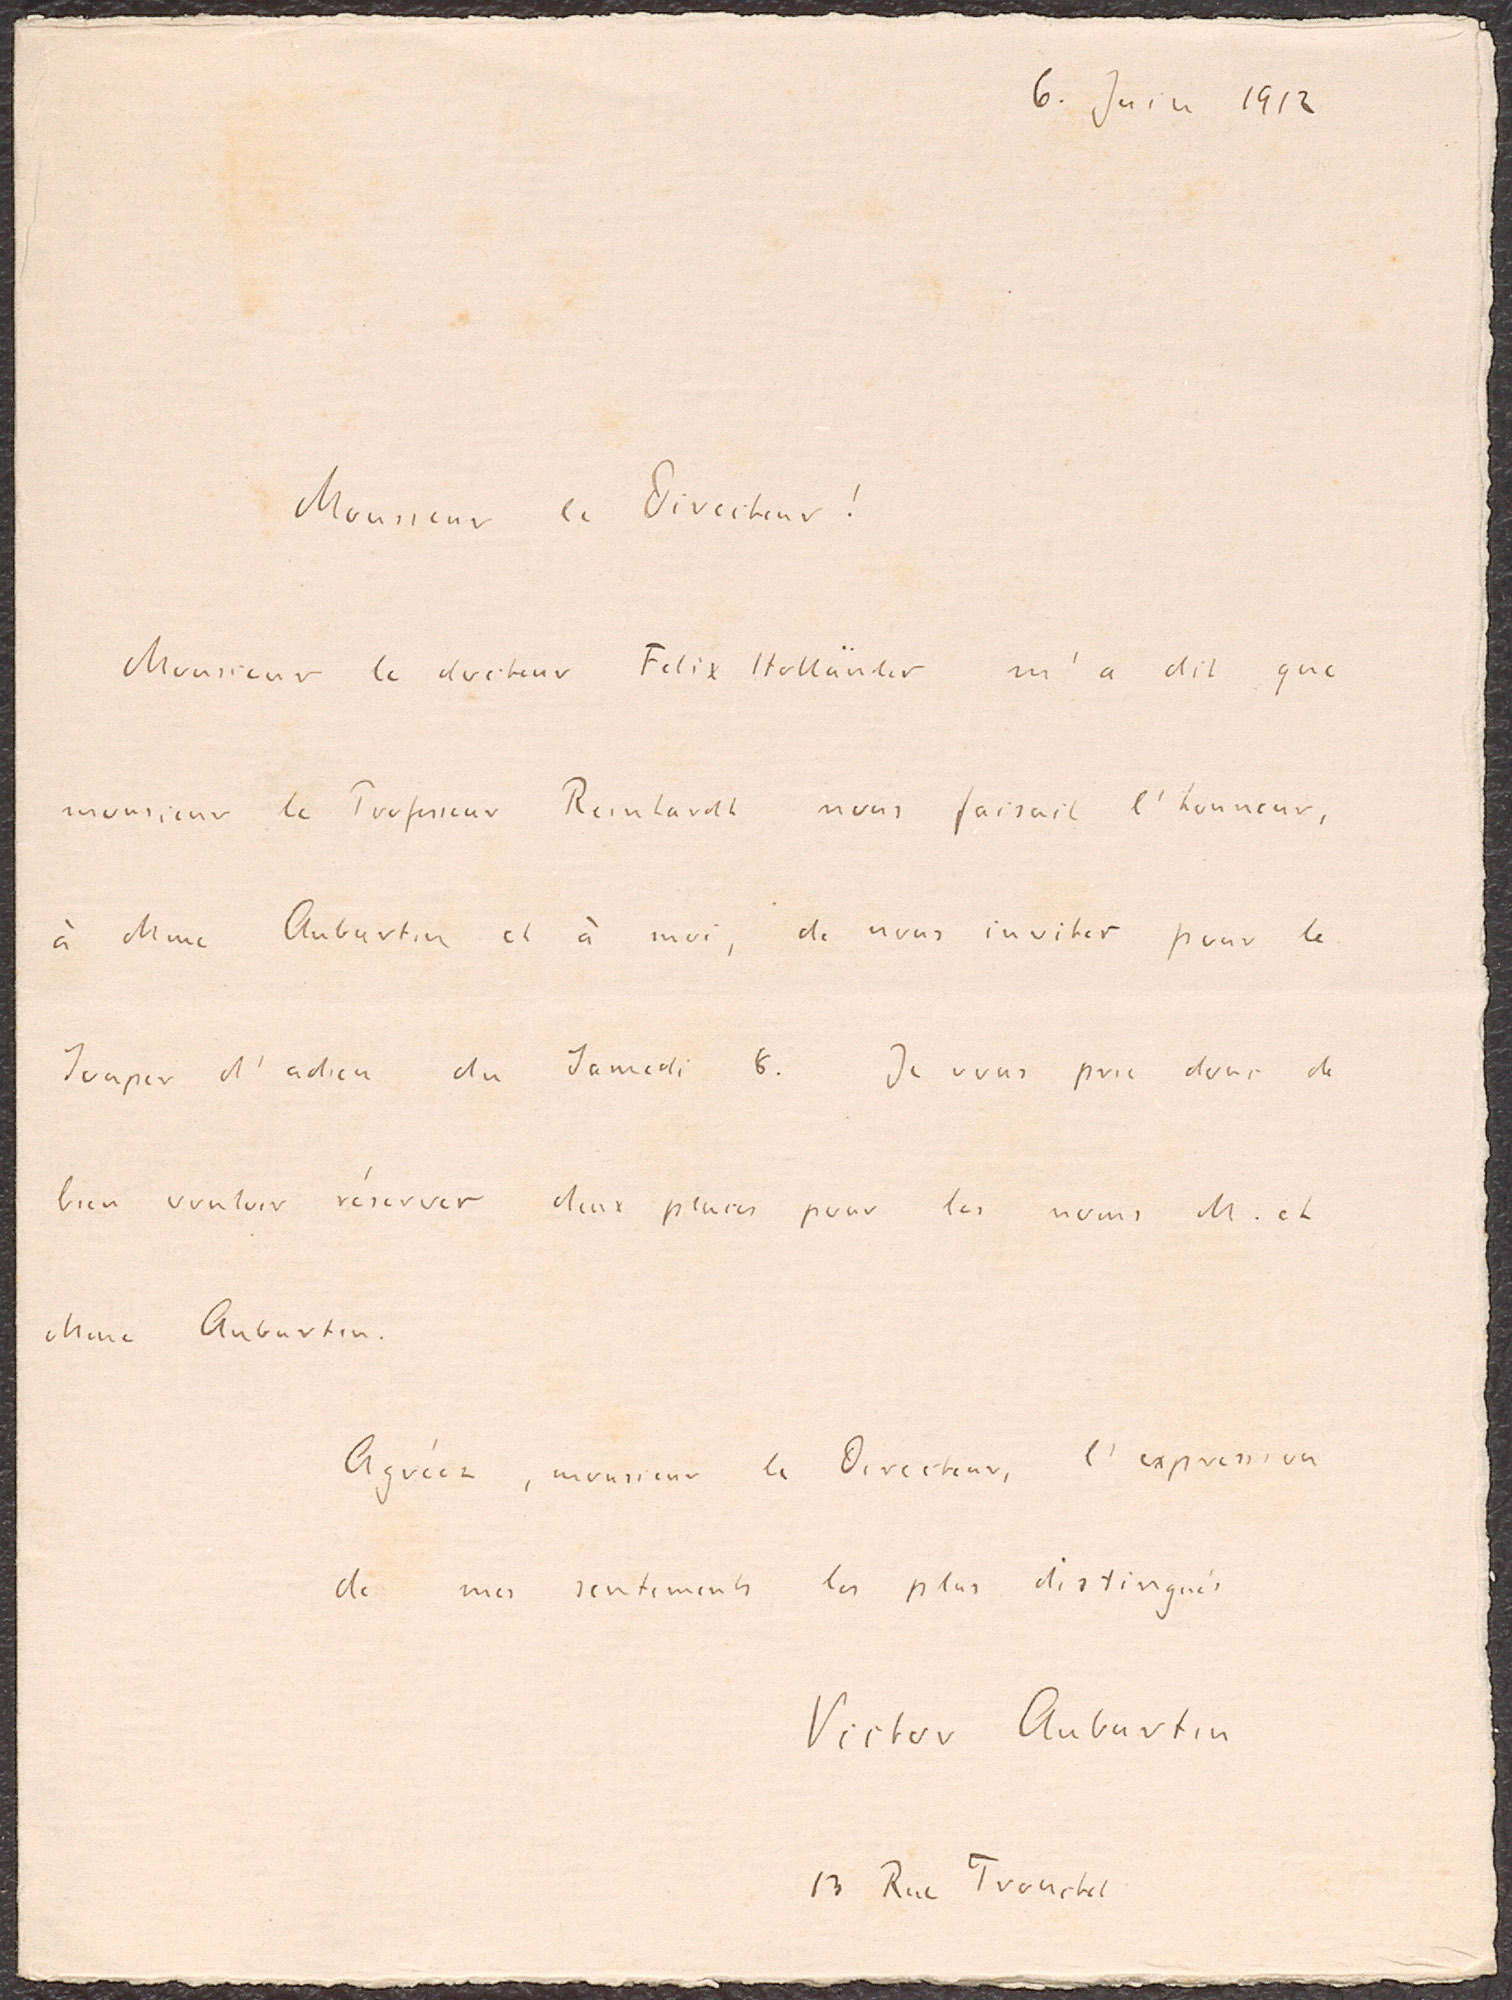 6. Juin 1912
Monsieur le Directeur!
Monsieur le docteur Felix Holländer m'a dit que
monsieur le Professeur Reinhardt nous faisait l'honneur,
à Mme Auburtin et à moi, de nous inviter pour le
Souper d'adieu du Samedi 8. Je vous prie donc de
bien vouloir réserver deux places pour les noms M. et
Mme Auburtin.
Agréez, monsieur le Directeur, l'expression
de mes sentements les plus distingués
Victor Auburtin
13 Rue Tronchet